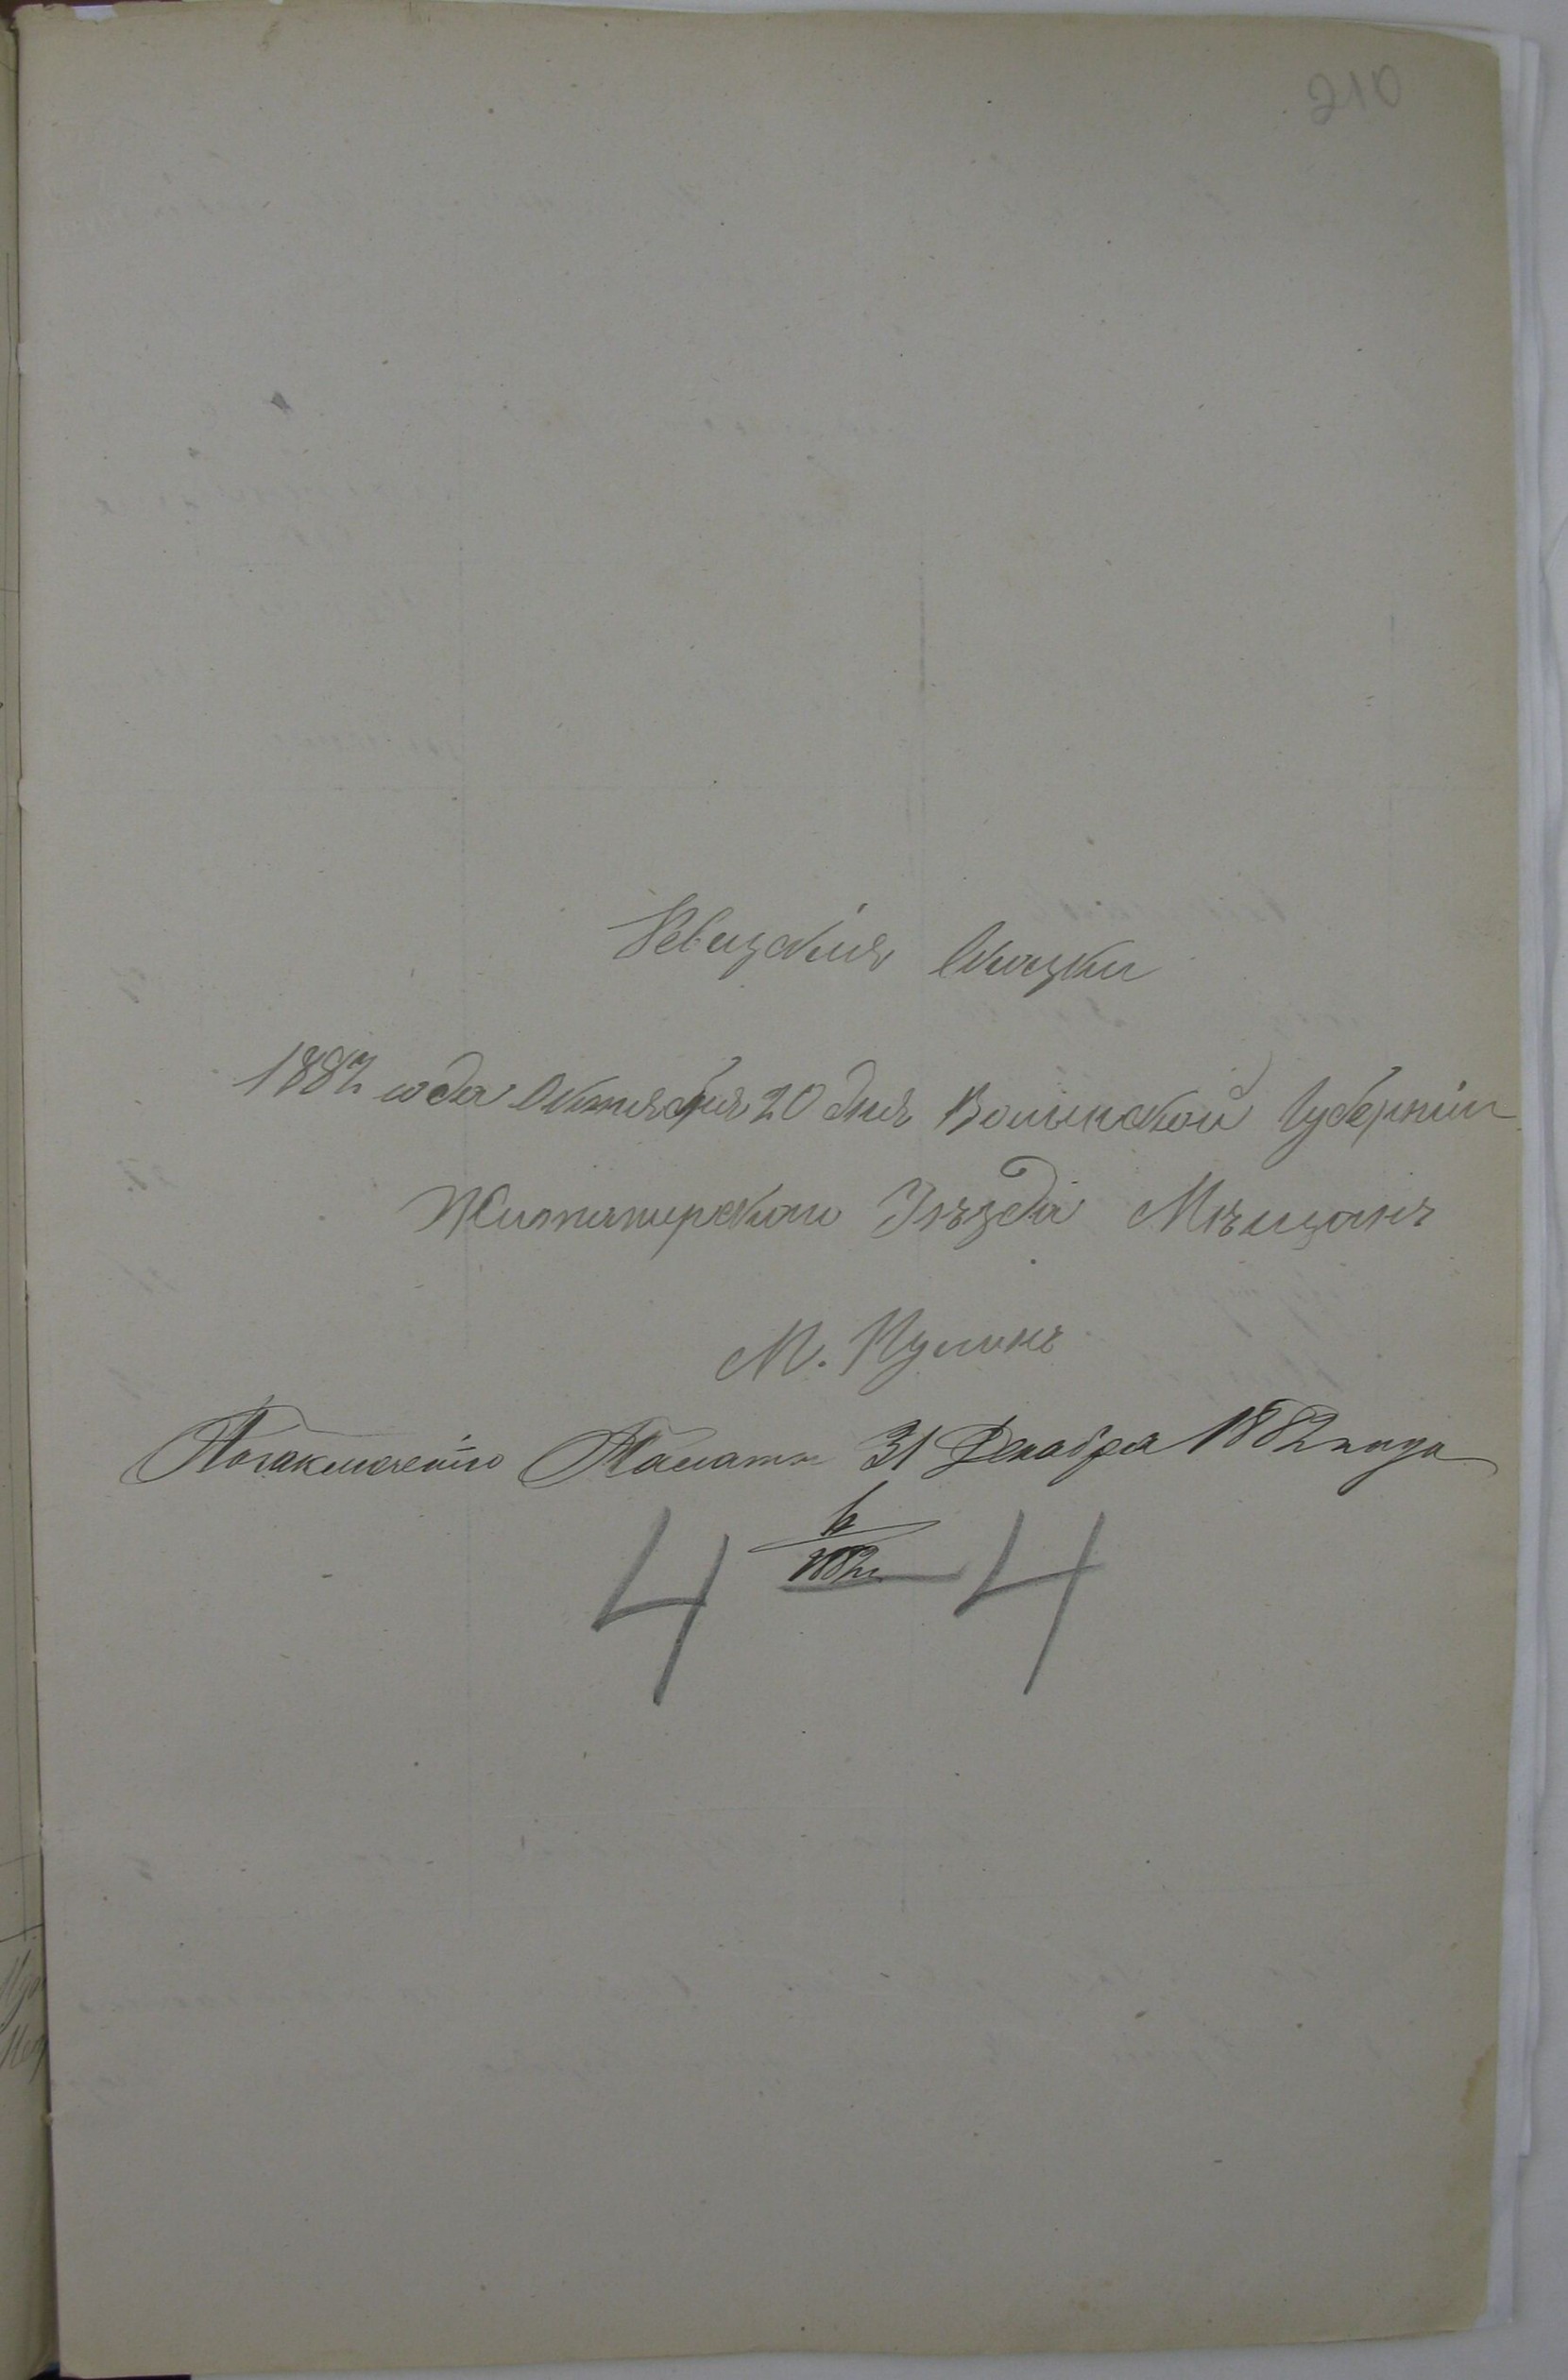 210
Ревизскія Сказки
1882 года Октября 20 дня Волынской Губерніи
Житомирскаго Уѣзда Мѣщанъ
М. Пулинъ
По заключенію Палаты 31 Декабря 1882 года
4 4
1882